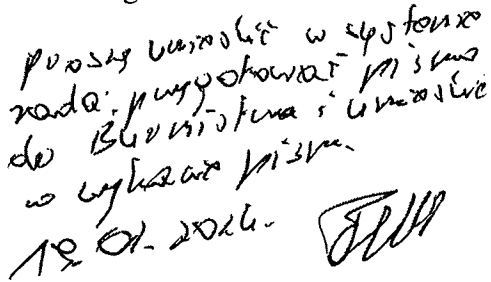 proszę umieścić w systemie
rada. przygotować pismo
do Burmistrza i umieścić
w wykazie pism.
19.01.2024.